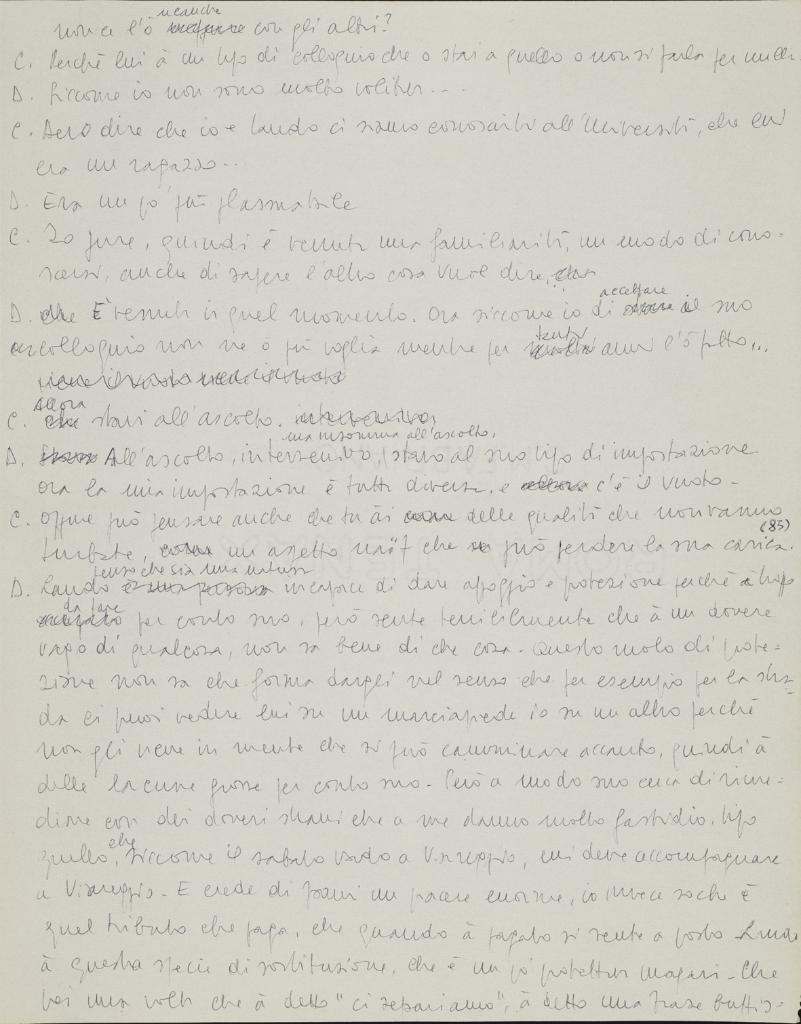 non ce l'ò neanche con gli altri?
C. Perché lui à un tipo di colloquio che o stai a quello o non si parla per nulla.
D. Siccome io non sono molto
C. Devo dire che io e Lando ci siamo conosciuti all'Università, che lui
era un ragazzo..
D. Era un po' più plasmabile
C. Io pure, quindi è venuta una familiarità, un modo di cono-
scersi, anche di sapere l'altro cosa vuol dire,
D. È venuto in quel momento. Ora siccome io di accettare il suo
colloquio non ne ò più voglia mentre per tanti anni l'ò fatto...
C. Allora stavi all'ascolto.
D. All'ascolto, intervenivo, ma insomma all'ascolto, stavo al suo tipo di impostazione.
Ora la mia impostazione è tutta diversa, e c'è il vuoto -
C. Oppure può pensare anche che tu ài delle qualità che non vanno
turbate, un aspetto naïf che può perdere la sua carica. (85)
D. Lando penso che sia una natura incapace di dare appoggio e protezione perché à troppo
da fare per conto suo, però sente terribilmente che à un dovere
vago di qualcosa, non sa bene di che cosa. Questo ruolo di prote-
zione non sa che forma dargli nel senso che per esempio per la stra-
da ci puoi vedere lui su un marciapiede io su un altro perché
non gli viene in mente che si può camminare accanto, quindi à
delle lacune grosse per conto suo. Però a modo suo cerca di rime-
diare con dei doveri strani che a me danno molto fastidio, tipo
quello, che siccome il sabato vado a Viareggio, mi deve accompagnare
a Viareggio. E crede di farmi un piacere enorme, io invece so che è
quel tributo che paga, che quando à pagato si sente a posto
à questa specie di sostituzione, che è un po' protettiva magari. Che
poi una volta che à detto "ci separiamo", à detto una frase buffis-